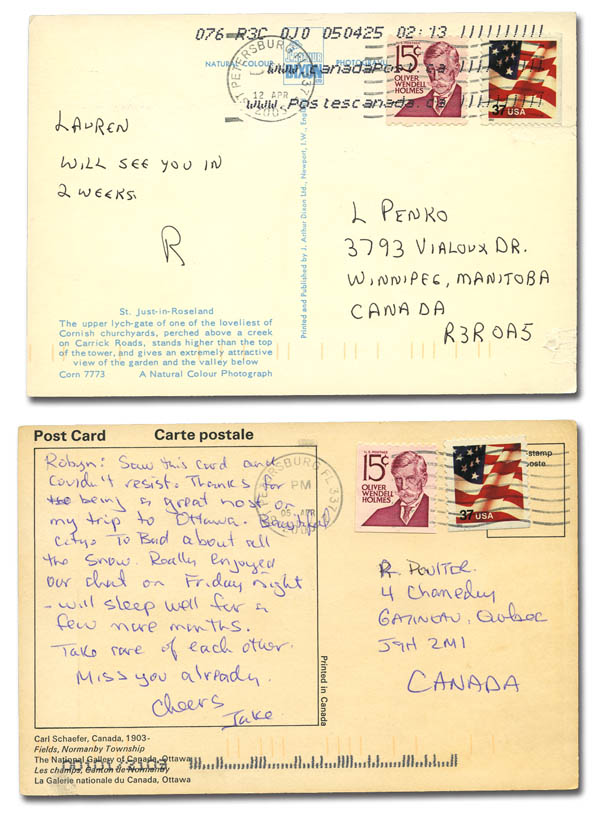 076 R3C 0J0 050425 02:13 ||||||||||
NATURAL COLOUR
www.canadapost.ca ||||||||||
www.postescanada.ca ||||||||||
ST PETERSBURG FL 337
12 APR
2005
15¢
U.S. POSTAGE
OLIVER
WENDELL
HOLMES
37 USA
LAUREN
WILL SEE YOU IN
2 WEEKS.
R
Printed and Published by J. Arthur Dixon Ltd., Newport, I.W., England
L PENKO
3793 VIALOUX DR.
WINNIPEG, MANITOBA
CANADA
R3R 0A5
St. Just-in-Roseland
The upper lych-gate of one of the loveliest of
Cornish churchyards, perched above a creek
on Carrick Roads, stands higher than the top
of the tower, and gives an extremely attractive
view of the garden and the valley below
Corn 7773 A Natural Colour Photograph
Post Card Carte postale
Robyn: Saw this card and
couldn't resist. Thanks for
being a great host on
my trip to Ottawa. Beautiful
city. To Bad about all
the snow. Really enjoyed
our chat on Friday night
- will sleep well for a
few more months.
Take care of each other.
Miss you already.
Cheers
Jake
PETERSBURG FL 337
PM
05 APR
U.S. POSTAGE
15¢
OLIVER
WENDELL
HOLMES
37 USA
stamp
poste
R. POULTER
4 Chamedey
GATINEAU, Quebec
J9H 2M1
CANADA
Printed in Canada
Carl Schaefer, Canada, 1903-
Fields, Normanby Township
The National Gallery of Canada, Ottawa
Les champs, Canton de Normanby
La Galerie nationale du Canada, Ottawa